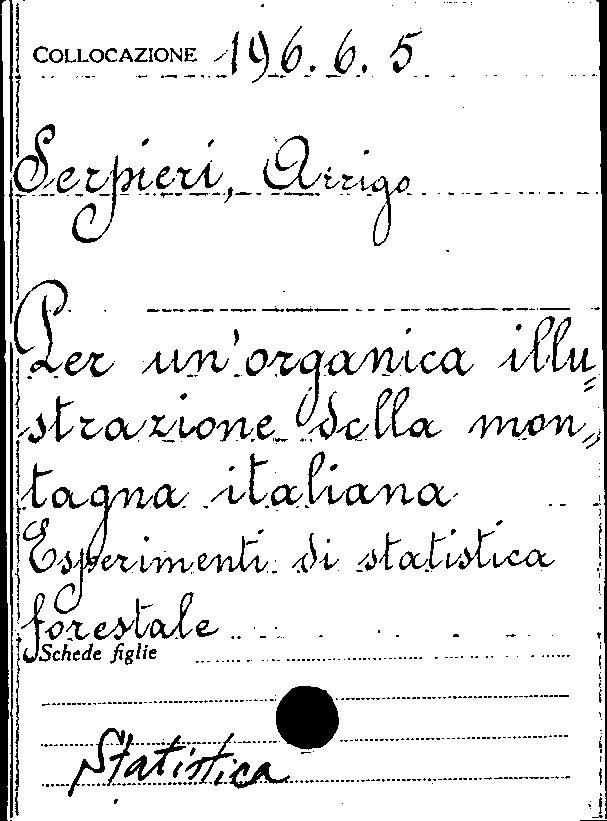 COLLOCAZIONE 196.6.5
Serpieri, Arrigo
Per un'organica illu=
strazione della mon=
tagna italiana
Esperimenti di statistica
forestale
Schede figlie
Statistica